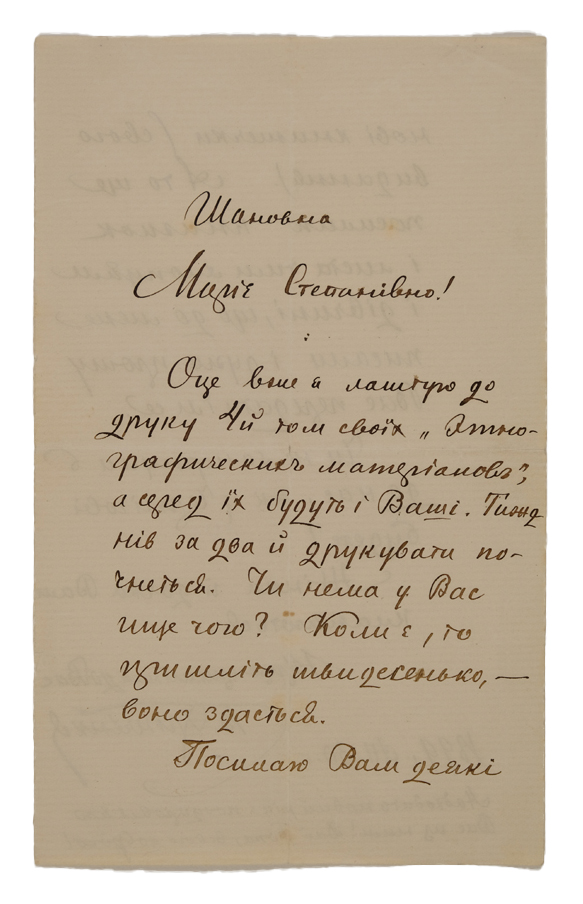 Шановна
Маріє Степанівно!
Оце вже й лаштую до
друку 4й том своїх „Этно-
графическихъ матеріаловъ",
а серед їх будуть і Ваші. Тижд
нів за два й друкувати по-
чнеться. Чи нема у Вас
ище чого? Коли є, то
пришліть швиденько, —
воно здасться.
Посилаю Вам деякі